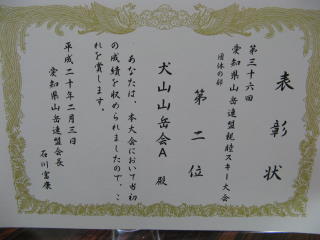 表彰状
第三十六回
愛知県山岳連盟親睦スキー大会
団体の部
第二位
犬山山岳会A 殿
あなたは、本大会において当初
の成績を収められましたので、こ
れを賞します。
平成二十年二月三日
愛知県山岳連盟会長
石川富康